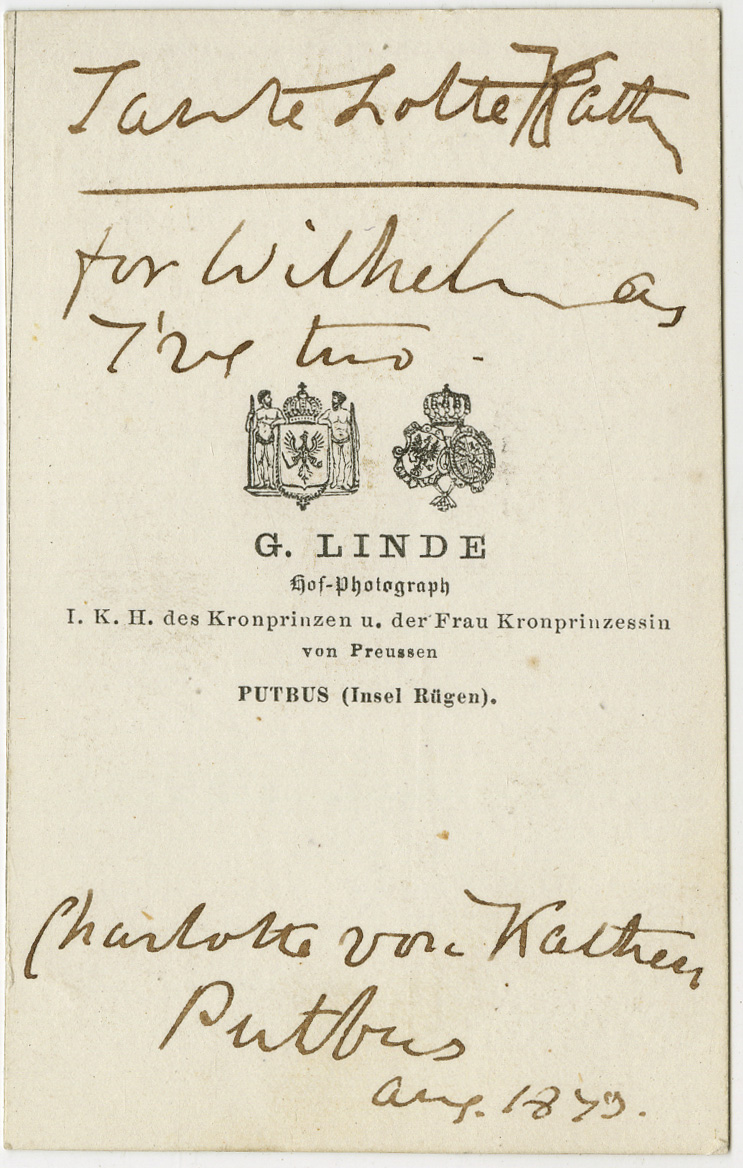 Tante Lotte Kath
for Wilhelm as
I've two -
G. LINDE
Hof-Photograph
I. K. H. des Kronprinzen u. der Frau Kronprinzessin
von Preussen
PUTBUS (Insel Rügen).
Charlotte von Kathen
Putbus
Aug. 1879.